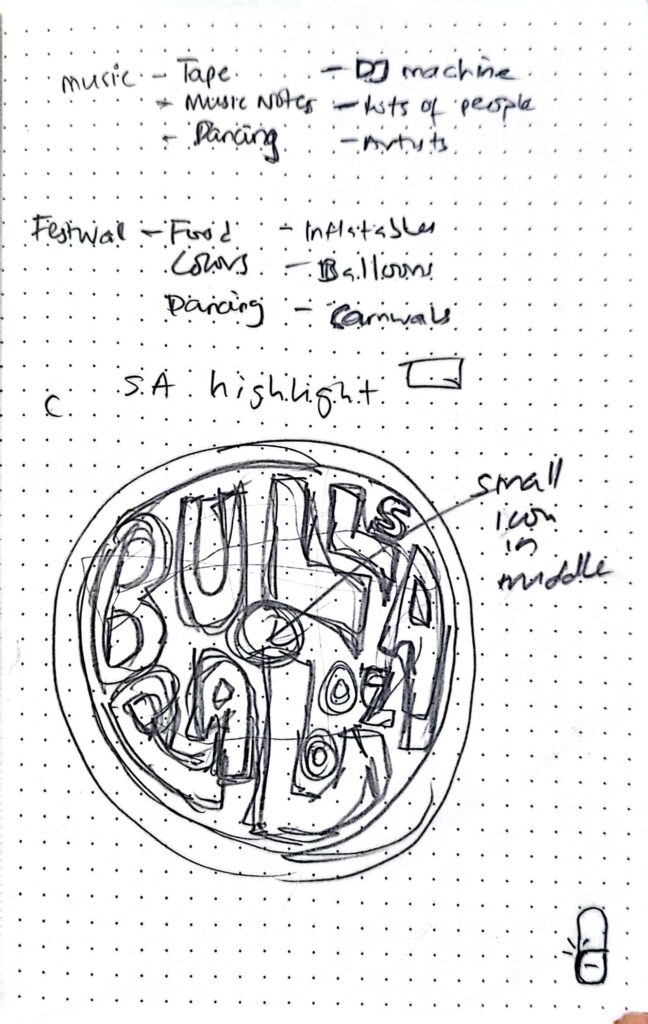 music - Tape - DJ machine
- Music Notes - Lots of people
- Dancing - Artists
Festival - Food - Inflatables
Colours - Balloons
Dancing - Carnivals
C S.A highlight
small
icon
in
middle
BULLS